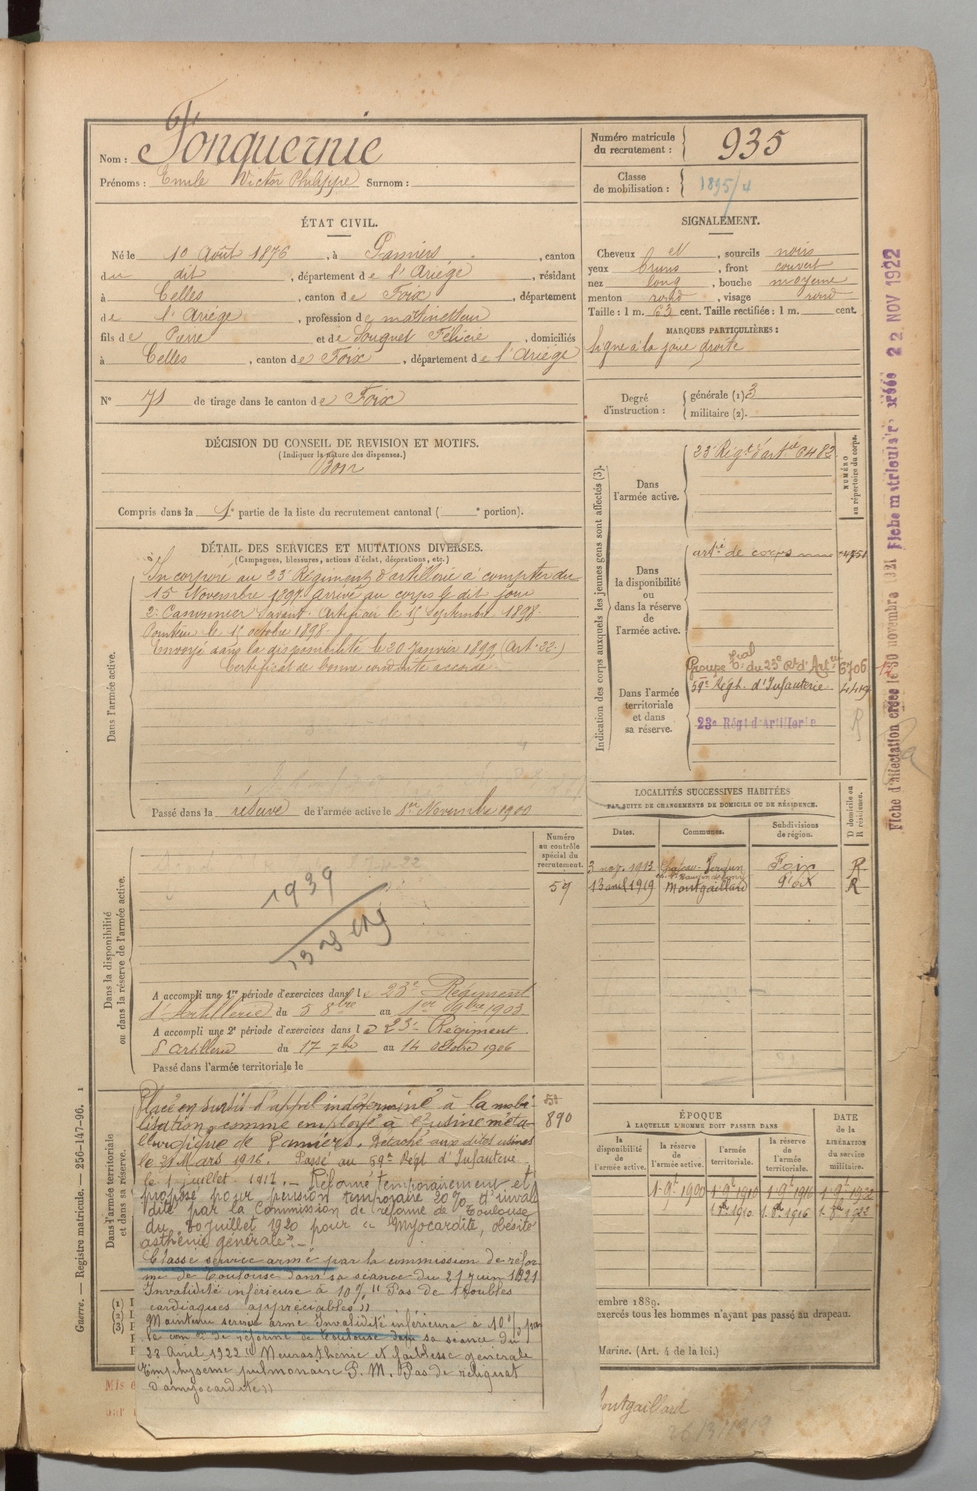 Nom : Fonquernie
Prénoms : Emile Victor Philippe Surnom :
Numéro matricule du recrutement : 935
Classe de mobilisation : 1895/4
ÉTAT CIVIL.
Né le 10 Août 1876, à Pamiers, canton
du dit, département de l'Ariège, résidant
à Celles, canton de Foix, département
de l'Ariège, profession de
fils de Pierre et de Fouquet Félicie, domiciliés
à Celles, canton de Foix, département de l'Ariège
N° 71 de tirage dans le canton de Foix
DÉCISION DU CONSEIL DE REVISION ET MOTIFS.
(Indiquer la nature des dispenses.)
Bon
Compris dans la 1e partie de la liste du recrutement cantonal ( e portion).
SIGNALEMENT.
Cheveux N, sourcils noirs
yeux bruns, front couvert
nez long, bouche moyenne
menton rond, visage rond
Taille : 1 m. 63 cent. Taille rectifiée : 1 m. cent.
MARQUES PARTICULIÈRES :
signe à la joue droite
Degré d'instruction : générale (1) 3
militaire (2).
DÉTAIL DES SERVICES ET MUTATIONS DIVERSES.
(Campagnes, blessures, actions d'éclat, décorations, etc.)
Dans l'armée active.
Incorporé au 23e Régiment d'artillerie à compter du
15 Novembre 1897. Arrivé au corps le dit jour
2e Canonnier Servant. Artificier le 15 Septembre 1898
Pointeur le 15 octobre 1898.
Envoyé dans la disponibilité le 20 Janvier 1899 (Art. 22.)
Certificat de bonne conduite accordé
Passé dans la réserve de l'armée active le 1er Novembre 1900
Indication des corps auxquels les jeunes gens sont affectés (3).
NUMÉRO au répertoire du corps.
Dans l'armée active.
23e Régt d'artie 6483
Dans la disponibilité ou dans la réserve de l'armée active.
artie de corps 4751
Dans l'armée territoriale et dans sa réserve.
Groupe tal du 23e Rt d'Artie 6706
59e Régt. d'Infanterie
23e Régt d'Artillerie
R
Fiche d'affectation créée le 30 novembre 1921 Fiche matriculaire créée 22 NOV 1922
Dans la disponibilité ou dans la réserve de l'armée active.
Numéro au contrôle spécial du recrutement.
57
1939
A accompli une 1re période d'exercices dans le 23e Régiment
d'Artillerie du 5 8bre au 1er 9bre 1903
A accompli une 2e période d'exercices dans le 23e Régiment
d'artillerie du 17 7bre au 14 octobre 1906
Passé dans l'armée territoriale le
LOCALITÉS SUCCESSIVES HABITÉES
PAR SUITE DE CHANGEMENTS DE DOMICILE OU DE RÉSIDENCE.
Dates. Communes. Subdivisions de région. D domicile ou R résidence.
3 nov. 1913 Foix R
13 avril 1919 Montgaillard Foix R
Dans l'armée territoriale et dans sa réserve.
890
Placé en sursis d'appel indéterminé à la mobi-
lisation, comme employé à l'usine méta-
llurgique de Pamiers. Détaché aux dites usines
le 21 Mars 1916. Passé au 59e Régt d'Infanterie
le 1 juillet 1917. — Réformé temporairement et
proposé pour pension temporaire 20% d'invali
dité par la Commission de réforme de Toulouse
du 20 juillet 1920 pour « Myocardite, obésité
asthénie générale ». —
Classé service armé par la commission de réfor
me de Toulouse dans sa séance du 21 juin 1921
Invalidité inférieure à 10% "Pas de troubles
cardiaques appréciables"
Maintenu service armé Invalidité inférieure à 10% par
la con de réforme de Toulouse dans sa séance du
28 Avril 1922 "Neurasthénie et faiblesse générale
Emphysème pulmonaire P. M. Pas de reliquat
d'amyocardite"
ÉPOQUE
À LAQUELLE L'HOMME DOIT PASSER DANS
la disponibilité de l'armée active. la réserve de l'armée active. l'armée territoriale. la réserve de l'armée territoriale. DATE de la LIBÉRATION du service militaire.
1. 9e 1900 1. 9e 1910 1. 9e 1916 1. 9e 1922
1. 8e 1910 1. 8e 1916 1. 8e 1922
cembre 1889.
exercés tous les hommes n'ayant pas passé au drapeau.
Marine. (Art. 4 de la loi.)
Montgaillard
Guerre. — Registre matricule. — 256-147-96. 1
(1)
(2)
(3)